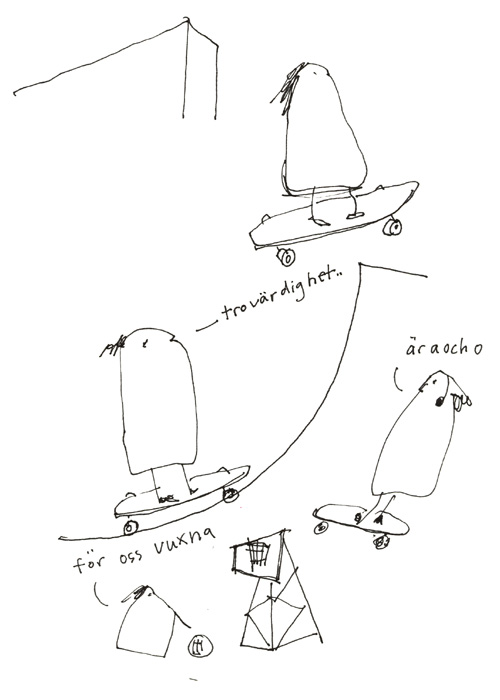 trovärdighet..
är a och o
för oss vuxna